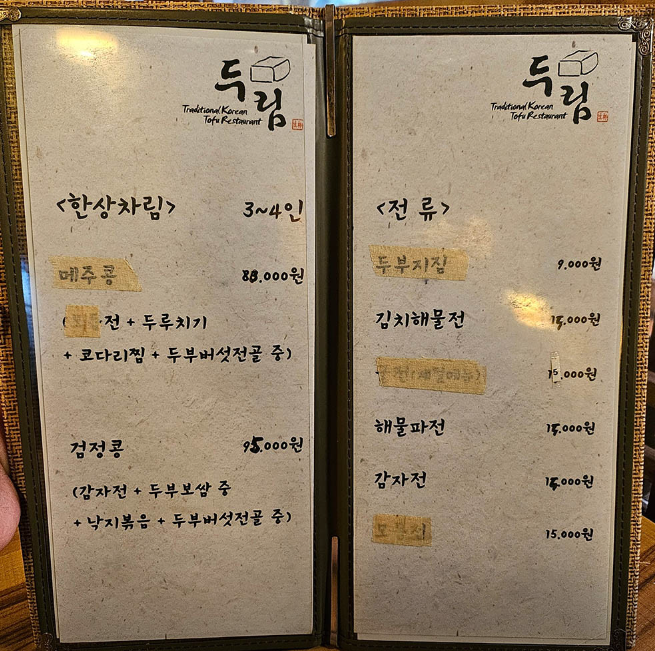 두림
Traditional Korean
Tofu Restaurant
<한상차림> 3~4인
메주콩 88.000원
전 + 두루치기
+ 코다리찜 + 두부버섯전골 중)
검정콩 95.000원
(감자전 + 두부보쌈 중
+ 낙지볶음 + 두부버섯전골 중)
두림
Traditional Korean
Tofu Restaurant
<전 류>
두부지짐 9.000원
김치해물전
15.000원
해물파전
감자전
15.000원